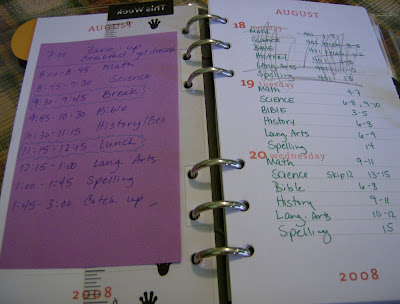 This Week
AUGUST
7:00
8:00-8:45 Math
8:45-9:30 Science
9:30-9:45 Break
9:45-10:30 Bible
10:30-11:15 History/Geo
11:15-12:15 Lunch
12:15-1:00 Lang. Arts
1:00-1:45 Spelling
1:45-3:00 Catch up
2008
AUGUST
18
Math
Science
Bible
History
Lang. Arts
Spelling
19 tuesday
Math 4-7
Science 6-8, 9-10
BIBLE 3-5
History 6-8
Lang. Arts 6-9
Spelling 14
20 wednesday
Math 9-11
Science skip 12 13-15
Bible 6-8
History 9-11
Lang. Arts 10-12
Spelling 15
2008